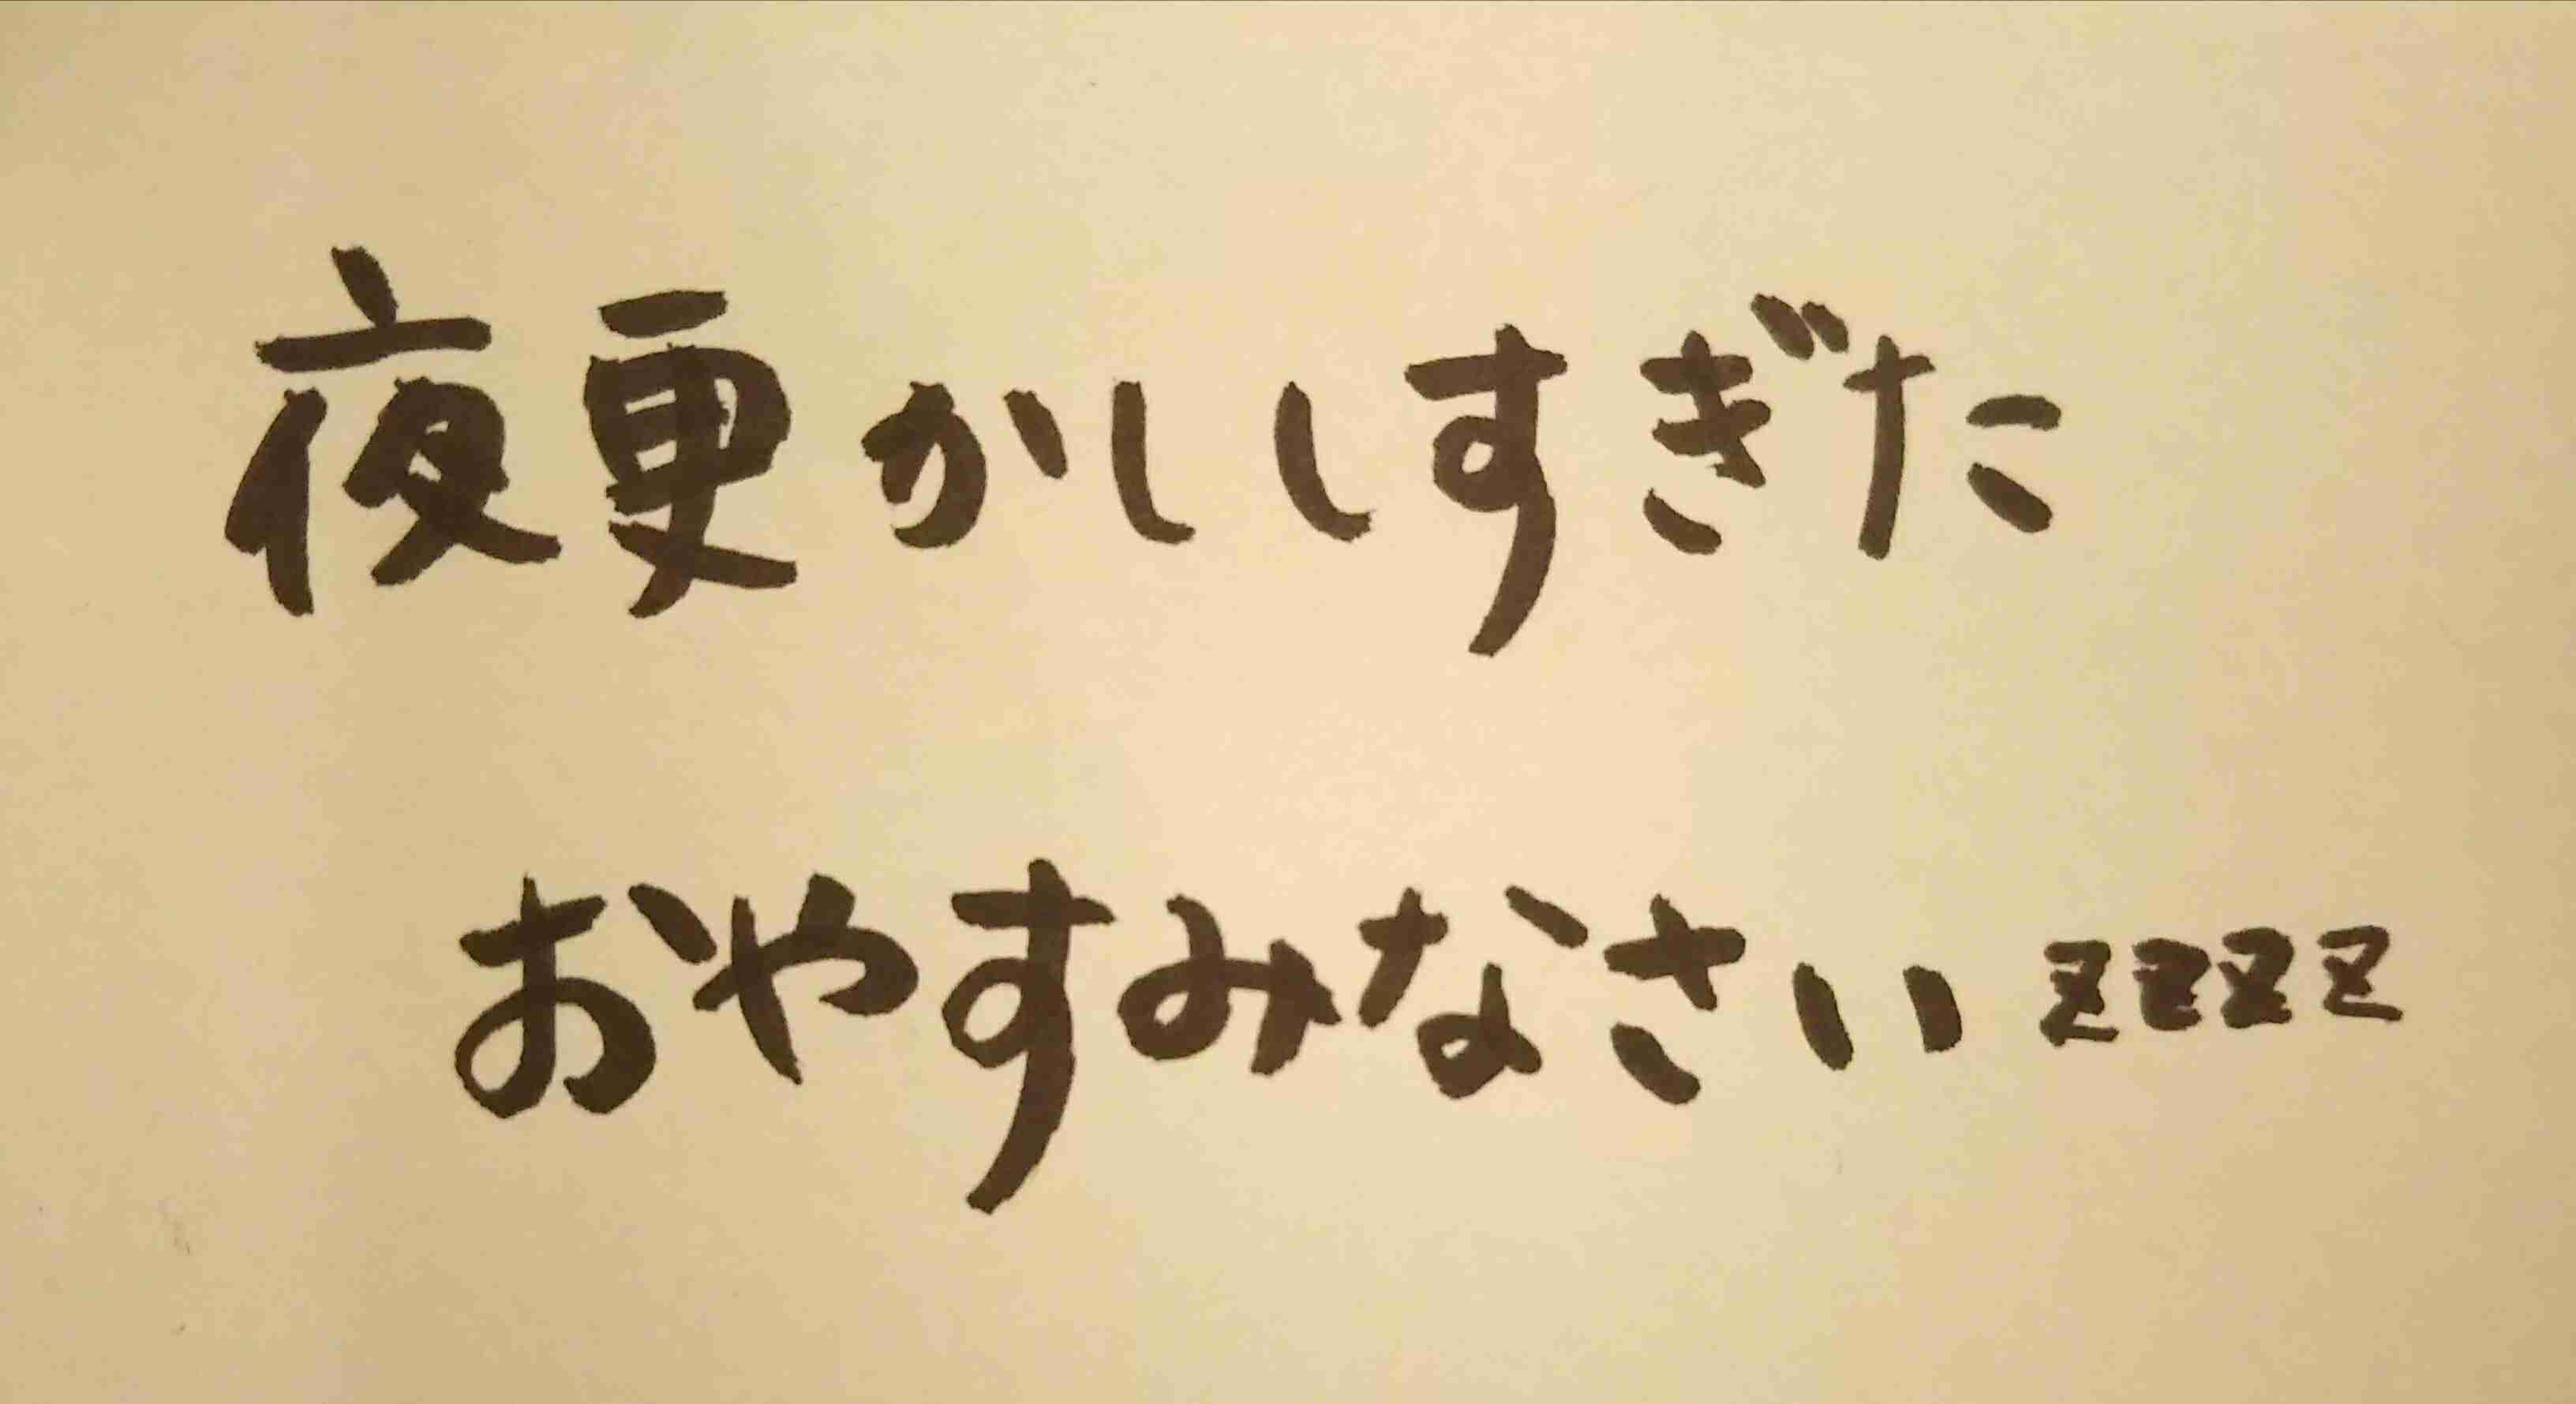 夜更かししすぎた
おやすみなさいzzzz